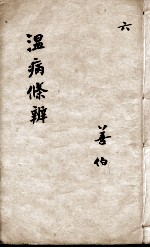 六
溫病條辨
善伯